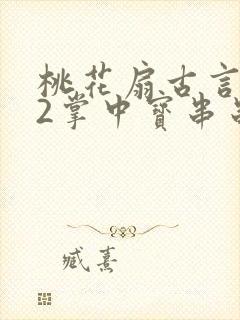 桃花扇古言
2掌中寳串
臧熹